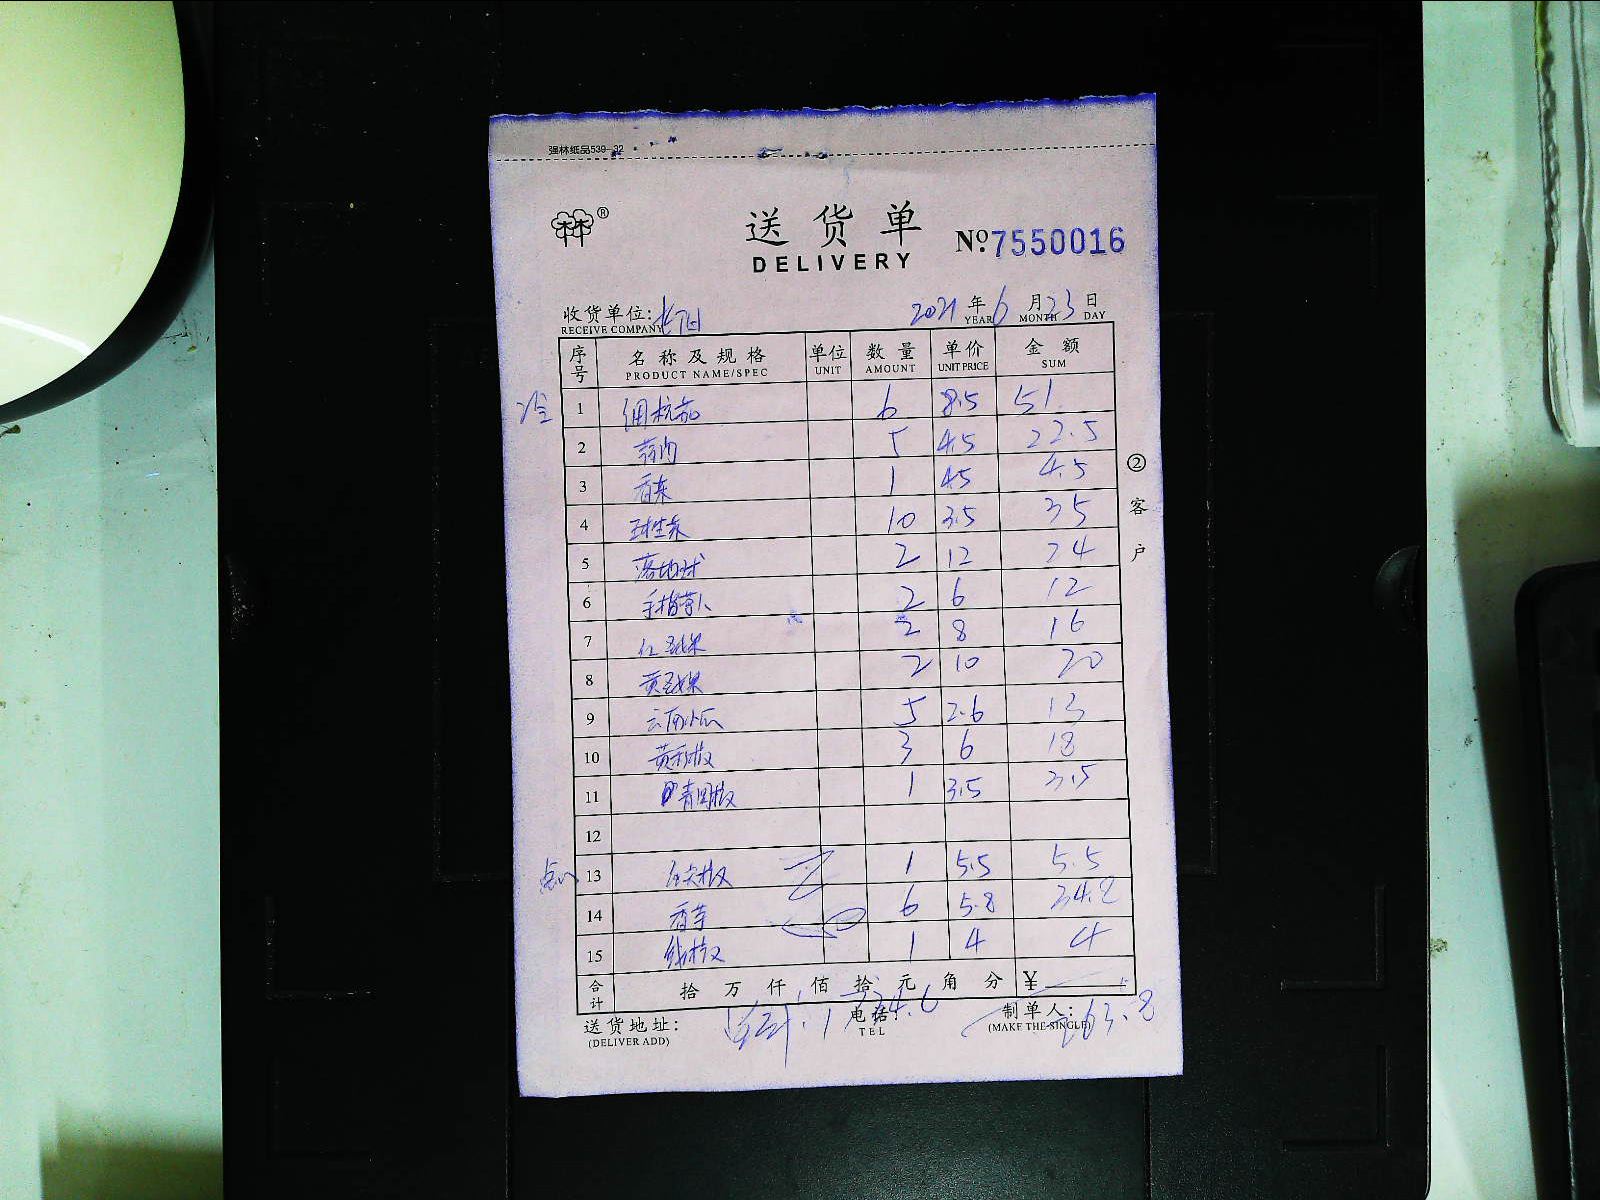 强林纸品539-32
林®
送货单
DELIVERY
№7550016
收货单位:
RECEIVE COMPANY
2021年6月23日
YEAR MONTH DAY
序号 名称及规格 单位 数量 单价 金额
PRODUCT NAME/SPEC UNIT AMOUNT UNIT PRICE SUM
冷 1 细杭茄 6 8.5 51
2 5 4.5 22.5
3 香菜 1 4.5 4.5
4 球生菜 10 3.5 35
5 2 12 24
6 2 6 12
7 红圣女果 2 8 16
8 黄圣女果 2 10 20
9 云南小瓜 5 2.6 13
10 黄彩椒 3 6 18
11 青圆椒 1 3.5 3.5
12
点心 13 1 5.5 5.5
14 香芋 6 5.8 34.8
15 线椒 1 4 4
合计 拾 万 仟 佰 拾 元 角 分 ¥
②客户
送货地址:
(DELIVER ADD)
电话:
TEL
制单人:
(MAKE THE SINGLE)
263.8